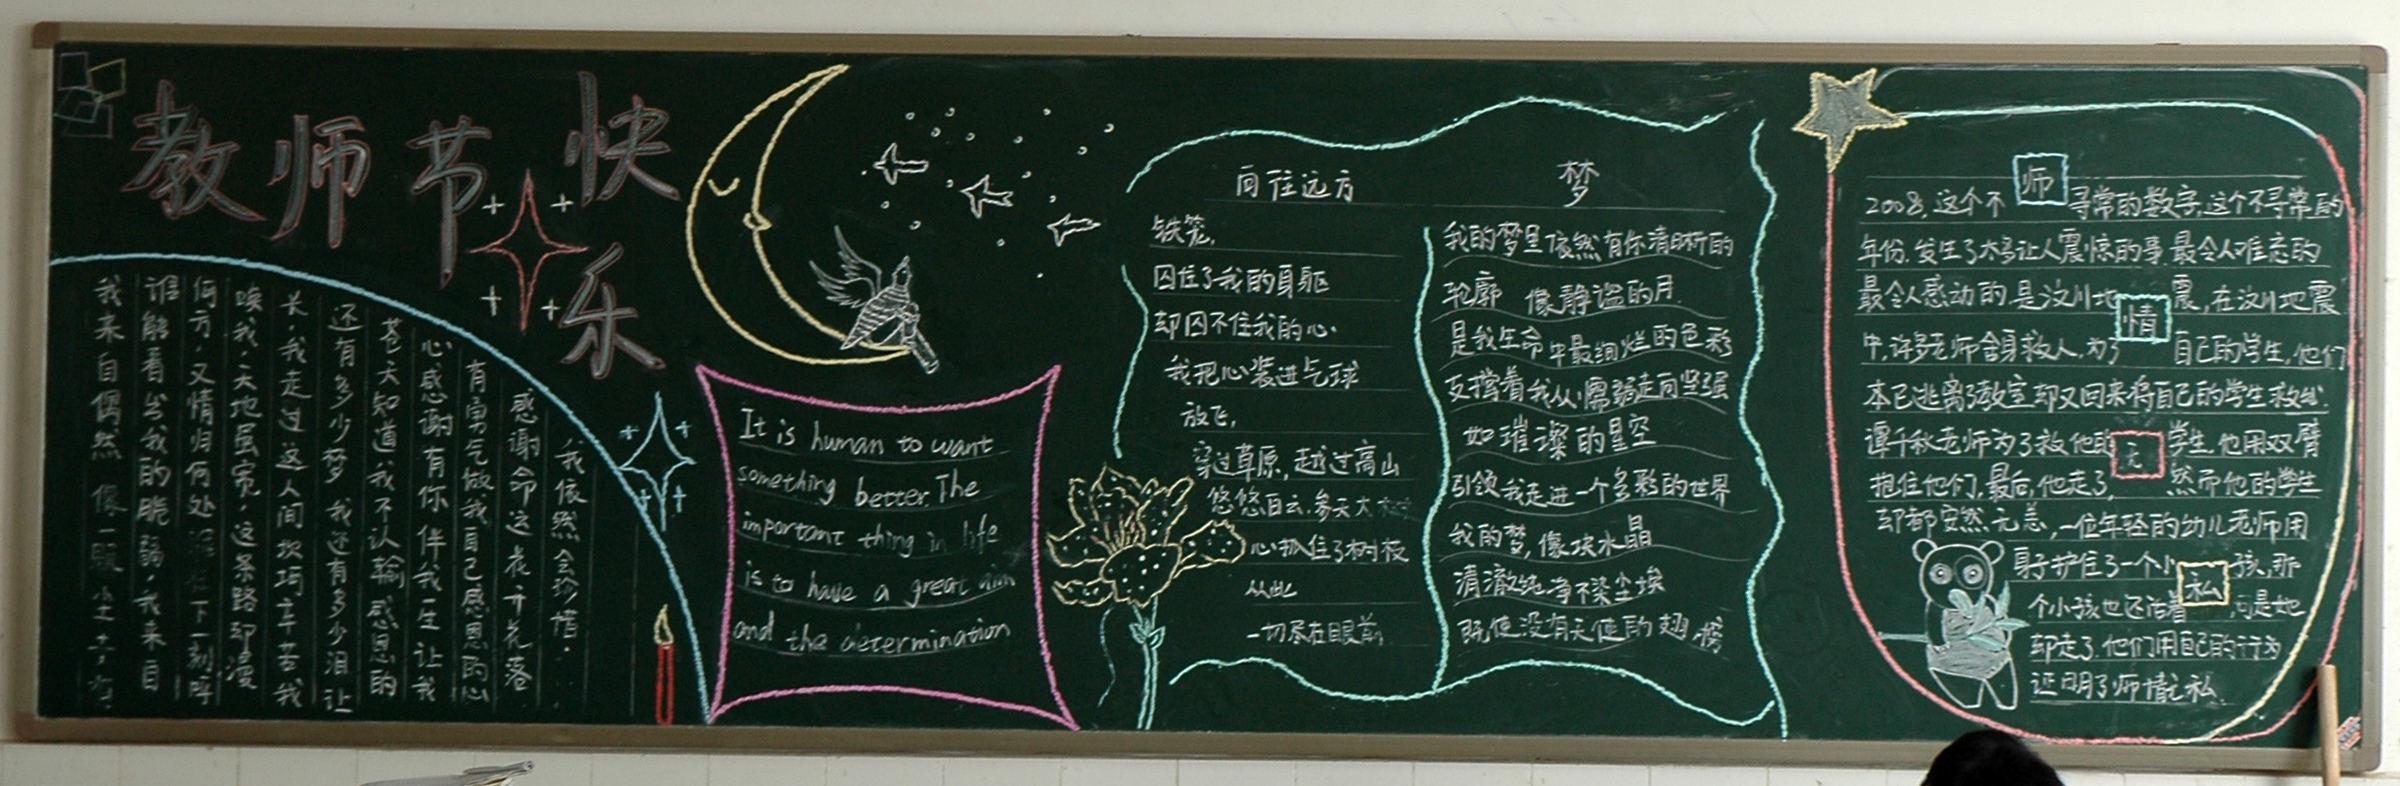 教师节快乐
我来自偶然像一颗尘土,有
谁能看出我的脆弱,我来自
何方,又情归何处 谁在下一刻呼
唤我,天地虽宽,这条路却漫
长,我走过这人间坎坷辛苦我
还有多少梦 我还有多少泪让
苍天知道我不认输 感恩的
心感谢有你 伴我一生让我
有勇气做我自己感恩的心
感谢命运 花开花落
我依然会珍惜...
It is human to want
something better. The
important thing in life
is to have a great aim
and the determination
向往远方
铁笼,
囚住了我的身躯
却囚不住我的心.
我把心装进气球
放飞,
穿过草原,越过高山
悠悠白云,参天大树
心抓住了树枝
从此
一切尽在眼前
梦
我的梦里依然有你清晰的
轮廓 像静谧的月
是我生命中最绚烂的色彩
支撑着我从懦弱走向坚强
如璀璨的星空
引领我走进一个多彩的世界
我的梦,像块水晶
清澈纯净不染尘埃
既使没有天使的翅膀
师情无私
2008,这个不寻常的数字,这个不寻常的
年份,发生了太多让人震惊的事,最令人难忘的
最令人感动的是汶川地震,在汶川地震
中,许多老师舍身救人,为了自己的学生,他们
本已逃离了教室却又回来将自己的学生救出
谭千秋老师为了救他的学生,他用双臂
抱住他们,最后,他走了,然而他的学生
却都安然无恙,一位年轻的幼儿老师用
身子护住了一个小孩,那
个小孩也还活着,可是她
却走了.他们用自己的行为
证明了师情无私